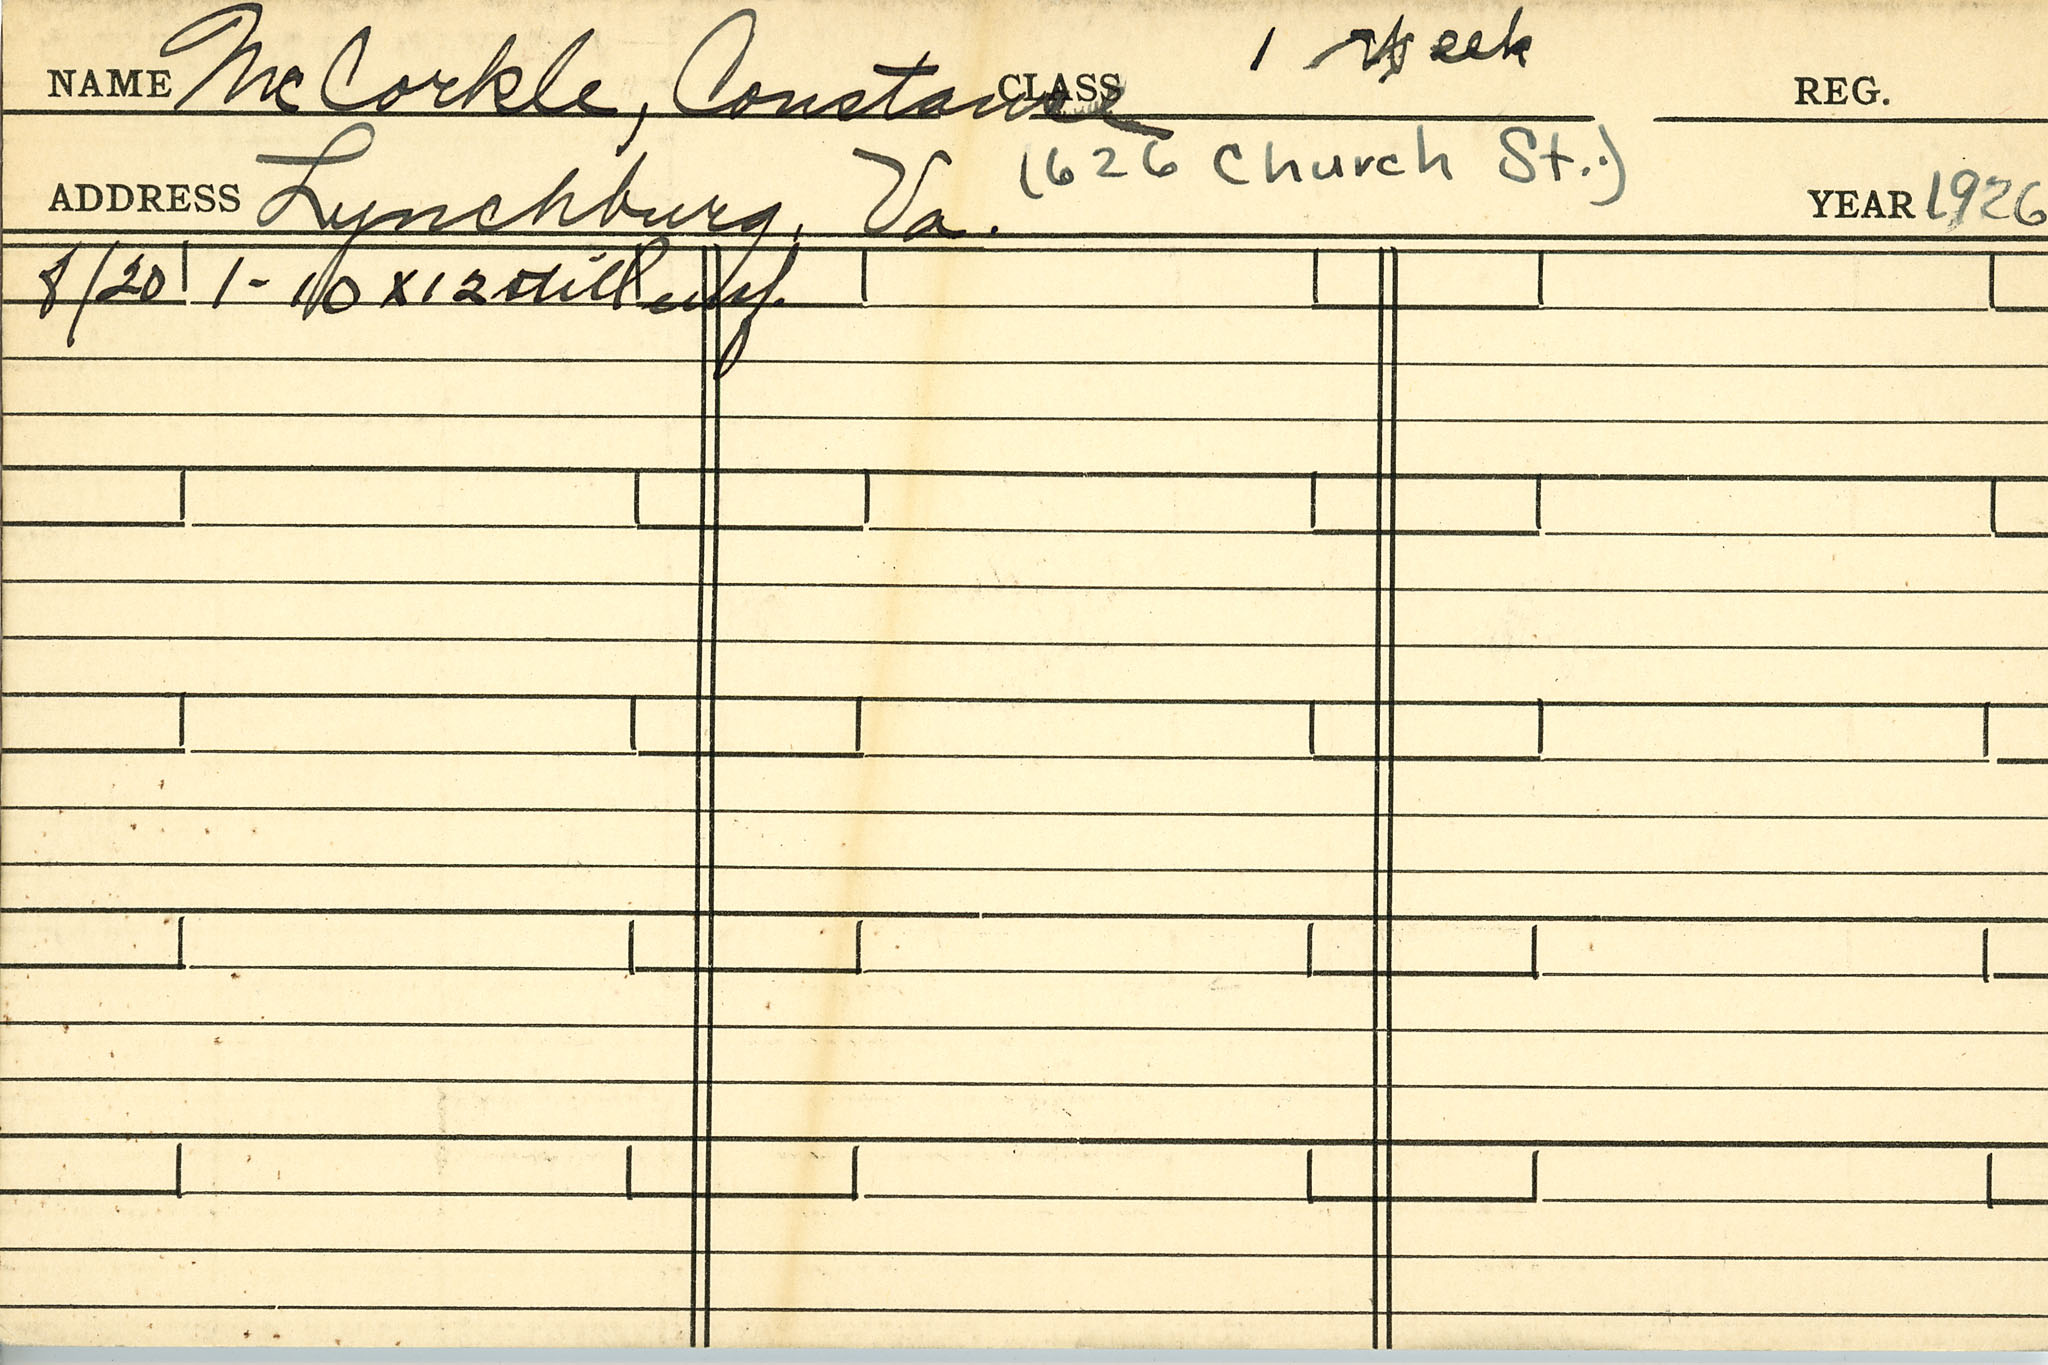 NAME McCorkle, Constance CLASS 1 Week REG.
ADDRESS Lynchburg, Va. (626 Church St.) YEAR 1926
8/20 1-10x12